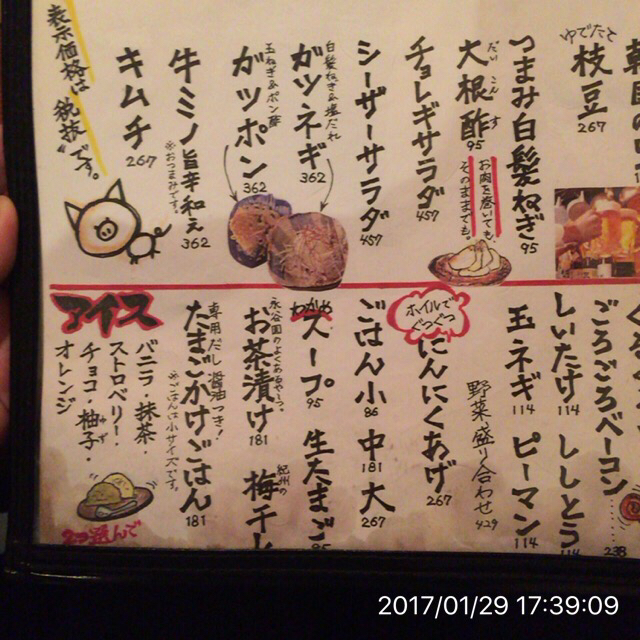 韓国の
ゆでたて
枝豆
267
つまみ白髪ねぎ
95
だいこんす
大根酢
95
お肉を巻いても、
そのままでも。
チョレギサラダ
457
シーザーサラダ
457
白髪ねぎ&塩だれ
ガツネギ
362
玉ねぎ&ポン酢
ガツポン
362
牛ミノ旨辛和え
※おつまみです。
362
キムチ
267
表示価格は
"税抜"です。
ごろごろベーコン
238
しいたけ
114
ししとう
114
玉ネギ
114
ピーマン
114
野菜盛り合わせ
429
ホイルで
ぐつぐつ
にんにくあげ
267
ごはん小
86
中
181
大
267
わかめ
スープ
95
生たまご
95
永谷園のよくあるやつ。
お茶漬け
181
紀州の
梅干し
専用だし醤油つき!
たまごかけごはん
※ごはんは小サイズです。
181
アイス
バニラ・抹茶・
ストロベリー・
チョコ・柚子・
ゆず
オレンジ
選んで
2017/01/29 17:39:09